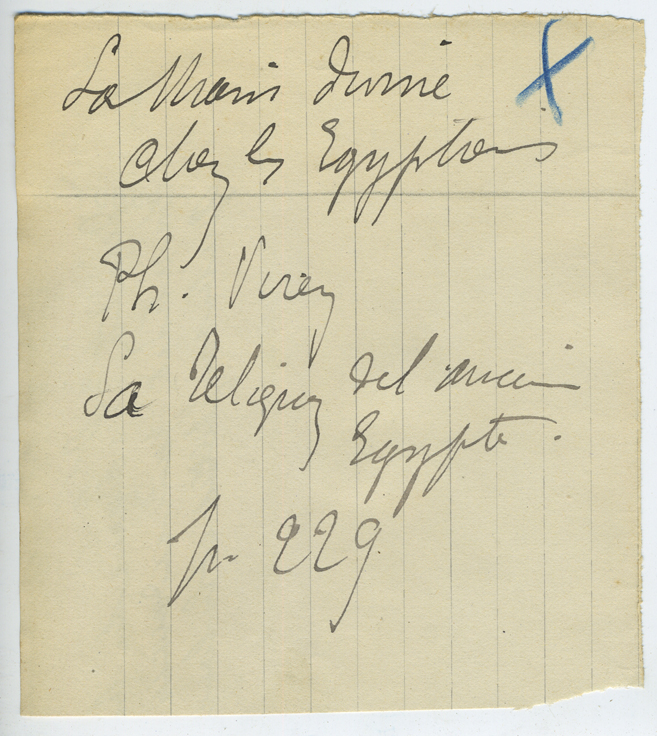 La Main divine
chez les Egyptiens
Ph. Virey
La Religion de l'ancienne
Egypte.
p. 229